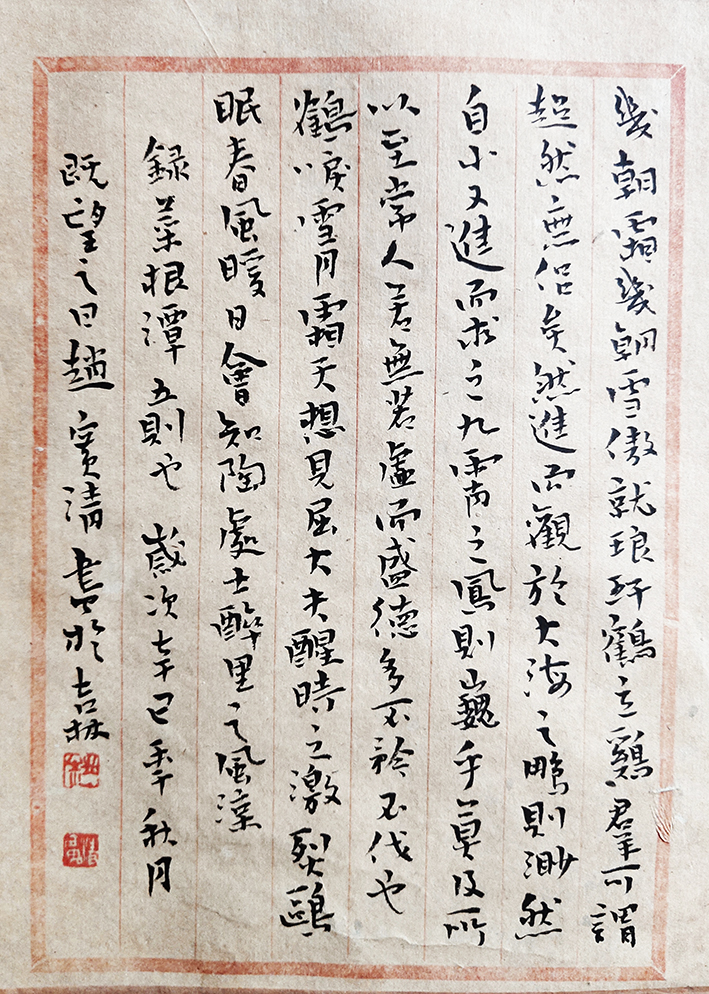 幾朝霜幾朝雪傲就琅玕鶴立鷄群可謂
超然無侣矣然進而觀於大海之鵬則渺然
自小又進而求之九霄之鳳則巍乎莫及所
以至常人若無若虚而盛德多不矜不伐也
鶴唳雪月霜天想見屈大夫醒時之激烈鷗
眠春風暖日會知陶處士醉里之風流
録菜根譚五則也 歲次辛巳季秋月
既望之日趙寶清書於吉林